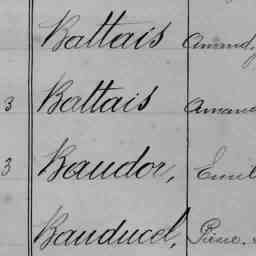 Battais Amand,
3 Battais Amand
3 Baudor, Emil
Bauducel, Pierre.